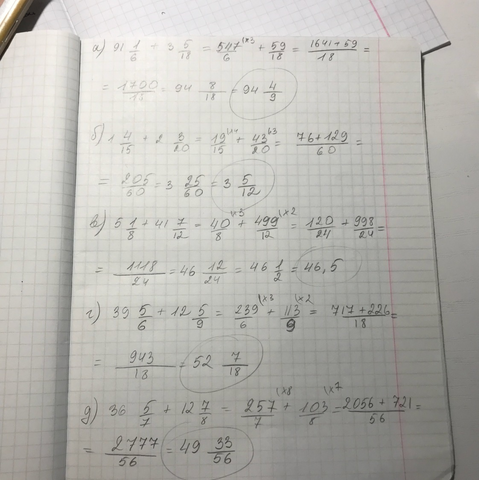 а) 91 1/6 + 3 5/18 = 547/6 (×3 + 59/18 = 1641+59/18 =
= 1700/18 = 94 8/18 = 94 4/9
б) 1 4/15 + 2 3/20 = 19/15 (×4 + 43/20 (×3 = 76+129/60 =
= 205/60 = 3 25/60 = 3 5/12
в) 5 1/8 + 41 7/12 = 40/8 ×3 + 499/12 (×2 = 120/24 + 998/24 =
= 1118/24 = 46 12/24 = 46 1/2 = 46,5
г) 39 5/6 + 12 5/9 = 239/6 (×3 + 113/9 (×2 = 717+226/18 =
= 943/18 = 52 7/18
д) 36 5/7 + 12 7/8 = 257/7 (×8 + 103/8 (×7 = 2056+721/56 =
= 2777/56 = 49 33/56